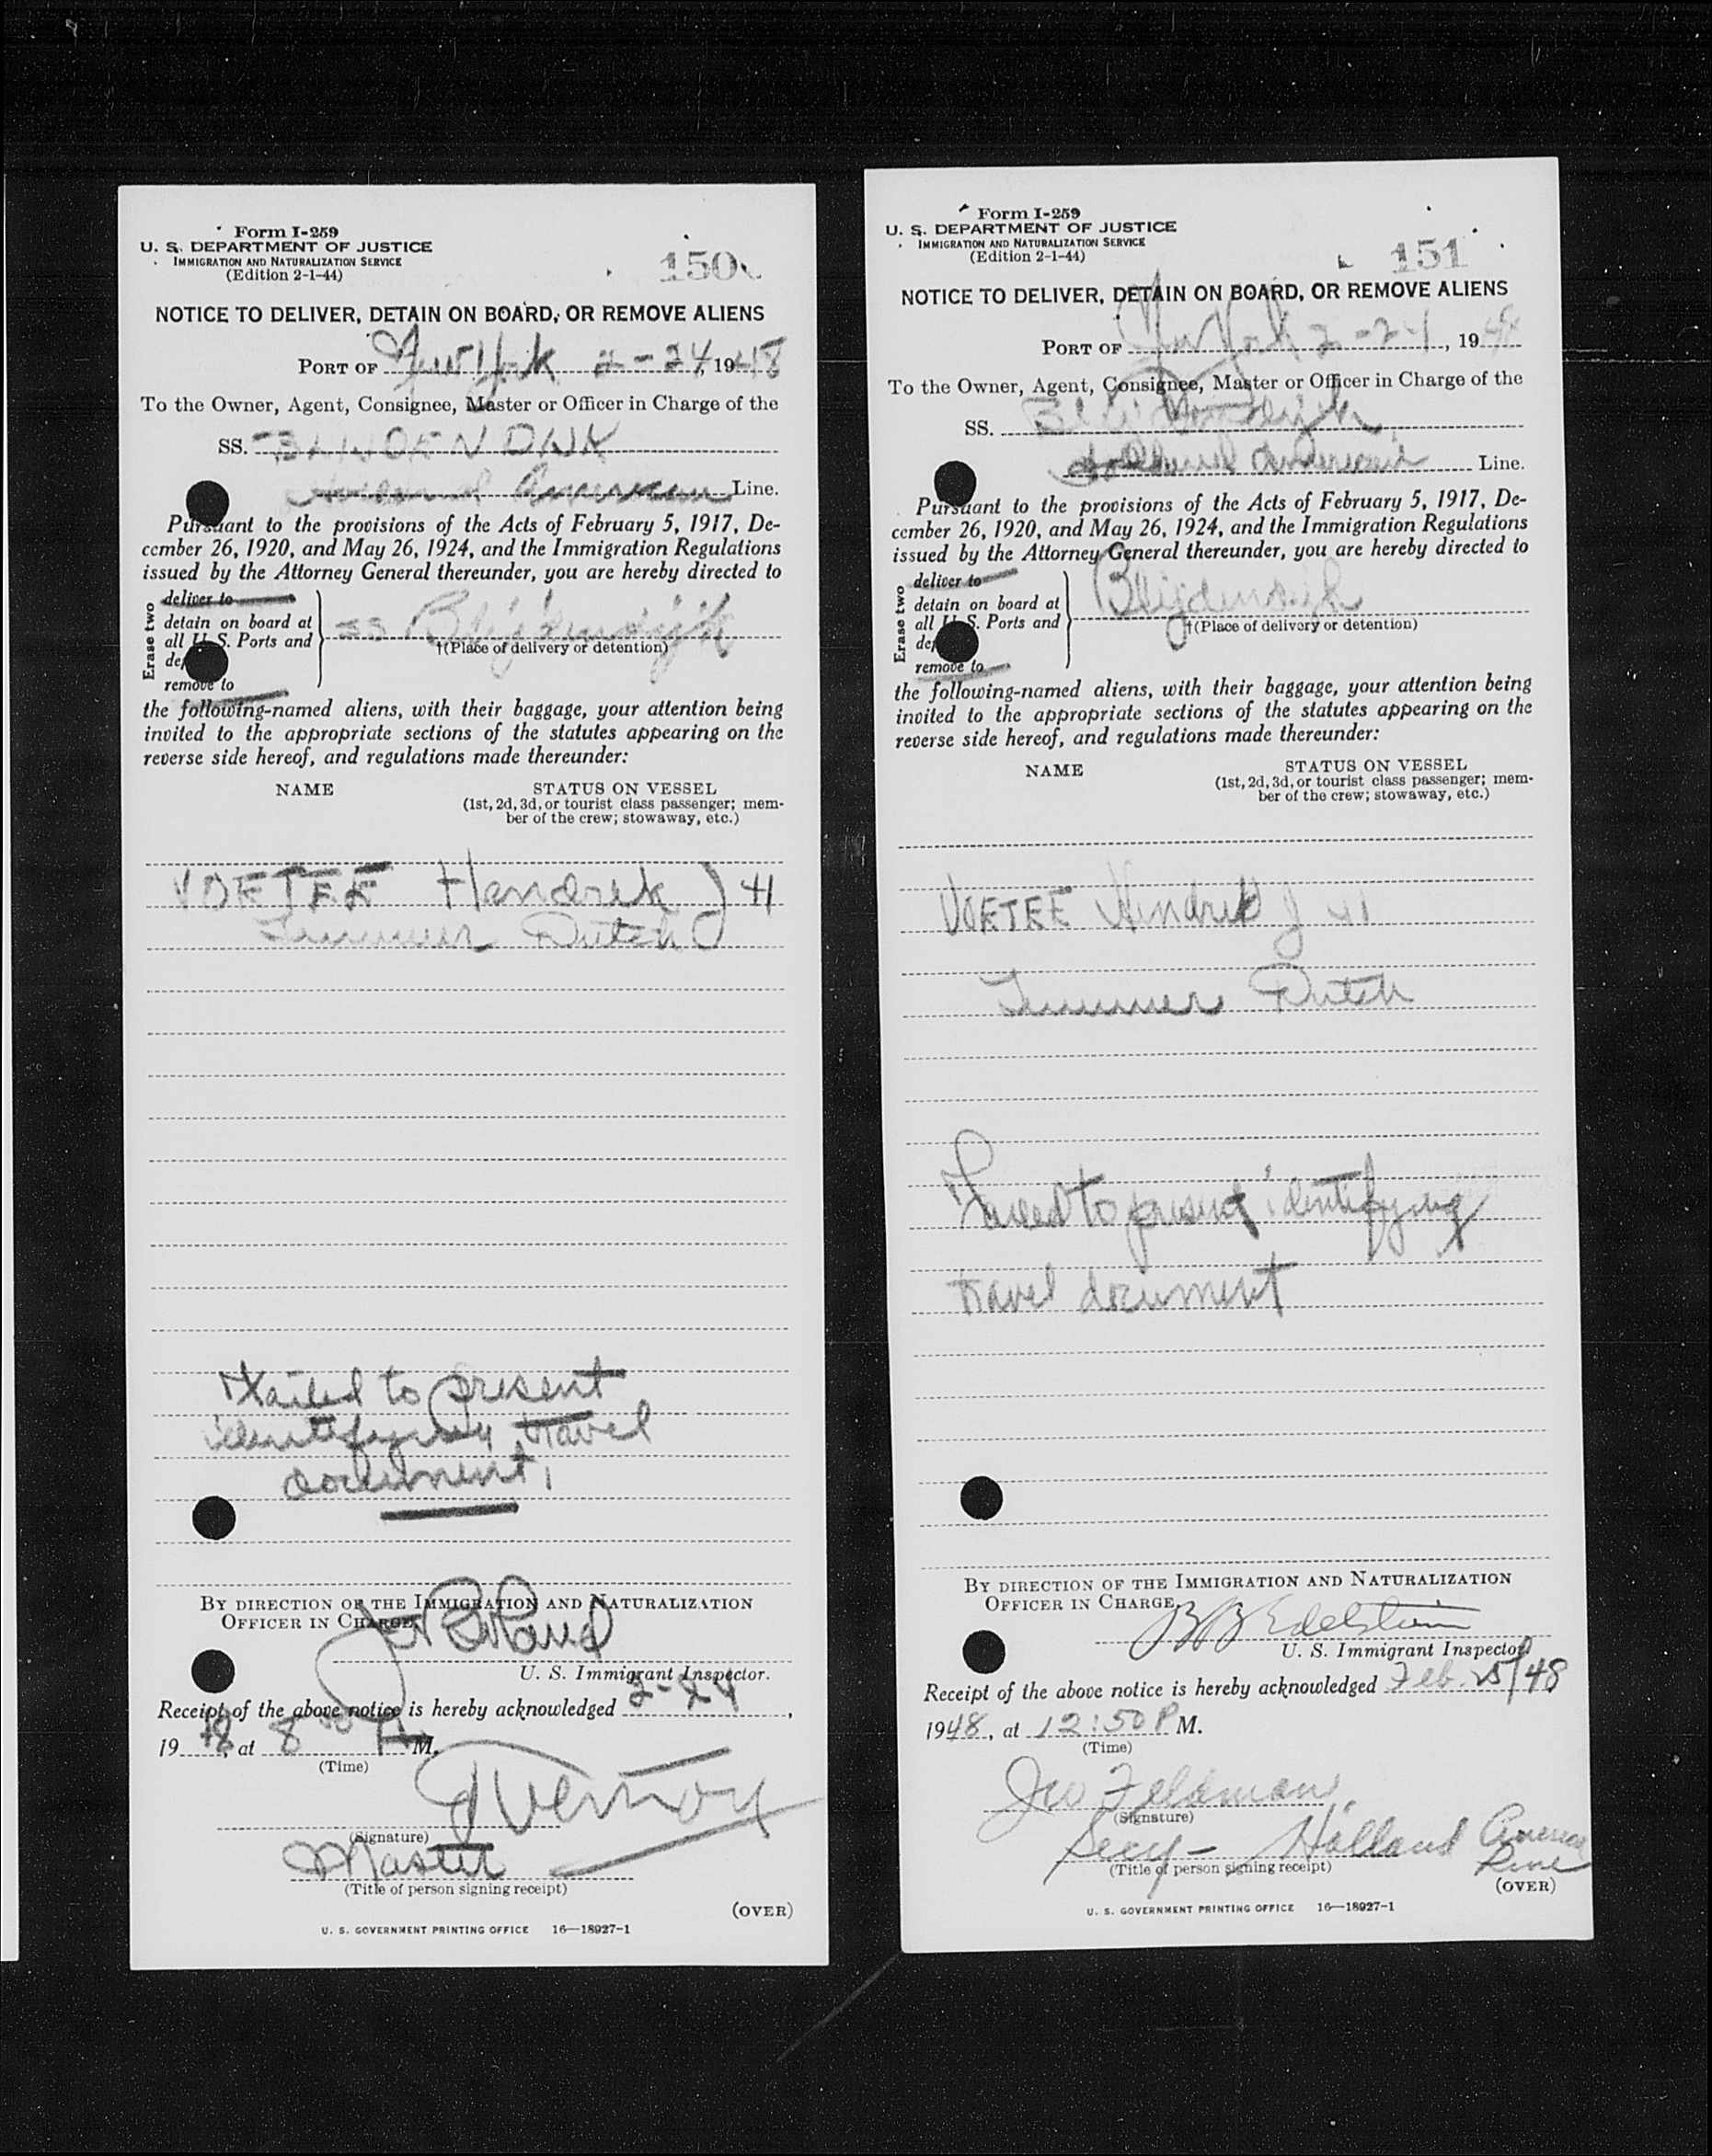 Form I-259
U. S. DEPARTMENT OF JUSTICE
IMMIGRATION AND NATURALIZATION SERVICE
(Edition 2-1-44)
150
NOTICE TO DELIVER, DETAIN ON BOARD, OR REMOVE ALIENS
PORT OF New York 2-24, 1948
To the Owner, Agent, Consignee, Master or Officer in Charge of the
SS.
American Line.
Pursuant to the provisions of the Acts of February 5, 1917, De-
cember 26, 1920, and May 26, 1924, and the Immigration Regulations
issued by the Attorney General thereunder, you are hereby directed to
Erase two
deliver to
detain on board at
all U. S. Ports and
remove to
SS Blijdendijk
†(Place of delivery or detention)
the following-named aliens, with their baggage, your attention being
invited to the appropriate sections of the statutes appearing on the
reverse side hereof, and regulations made thereunder:
NAME STATUS ON VESSEL
(1st, 2d, 3d, or tourist class passenger; mem-
ber of the crew; stowaway, etc.)
VOETEE Hendrik J 41
Trimmer Dutch
Failed to present
identifying travel
document.
BY DIRECTION OF THE IMMIGRATION AND NATURALIZATION
OFFICER IN CHARGE
U. S. Immigrant Inspector.
Receipt of the above notice is hereby acknowledged 2-24,
1948, at 8 00 A M.
(Time)
(Signature)
Master
(Title of person signing receipt)
(OVER)
U. S. GOVERNMENT PRINTING OFFICE 16—18927-1
Form I-259
U. S. DEPARTMENT OF JUSTICE
IMMIGRATION AND NATURALIZATION SERVICE
(Edition 2-1-44)
151
NOTICE TO DELIVER, DETAIN ON BOARD, OR REMOVE ALIENS
PORT OF New York 2-24, 1948
To the Owner, Agent, Consignee, Master or Officer in Charge of the
SS. Blijdendijk
Holland American Line.
Pursuant to the provisions of the Acts of February 5, 1917, De-
cember 26, 1920, and May 26, 1924, and the Immigration Regulations
issued by the Attorney General thereunder, you are hereby directed to
Erase two
deliver to
detain on board at
all U. S. Ports and
remove to
Blijdendijk
†(Place of delivery or detention)
the following-named aliens, with their baggage, your attention being
invited to the appropriate sections of the statutes appearing on the
reverse side hereof, and regulations made thereunder:
NAME STATUS ON VESSEL
(1st, 2d, 3d, or tourist class passenger; mem-
ber of the crew; stowaway, etc.)
VOETEE Hendrik J 41
Trimmer Dutch
Failed to present identifying
travel document
BY DIRECTION OF THE IMMIGRATION AND NATURALIZATION
OFFICER IN CHARGE
B B Edelstein
U. S. Immigrant Inspector.
Receipt of the above notice is hereby acknowledged Feb. 25/48
1948, at 12:50 P M.
(Time)
Geo Feldman
(Signature)
Secy - Holland America Line
(Title of person signing receipt)
(OVER)
U. S. GOVERNMENT PRINTING OFFICE 16—18927-1